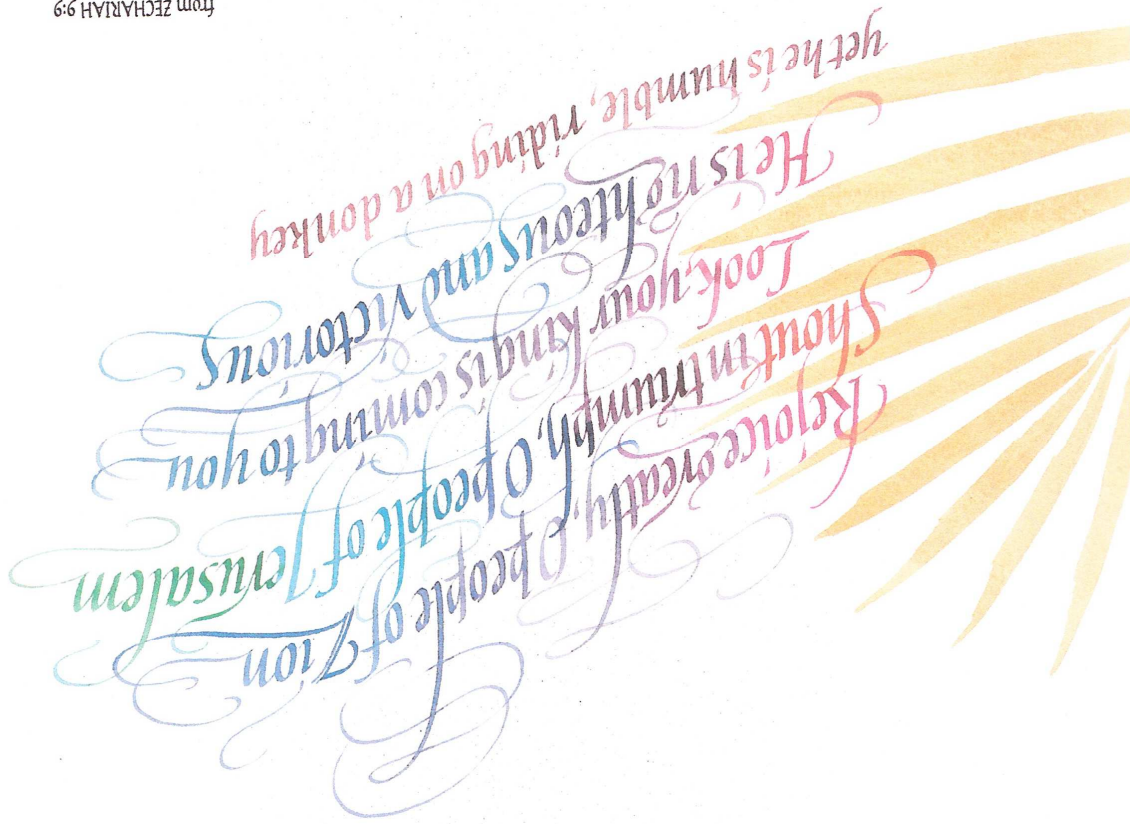 Rejoice greatly, O people of Zion
Shout in triumph, O people of Jerusalem
Look, your king is coming to you
He is righteous and victorious
yet he is humble, riding on a donkey
from ZECHARIAH 9:9